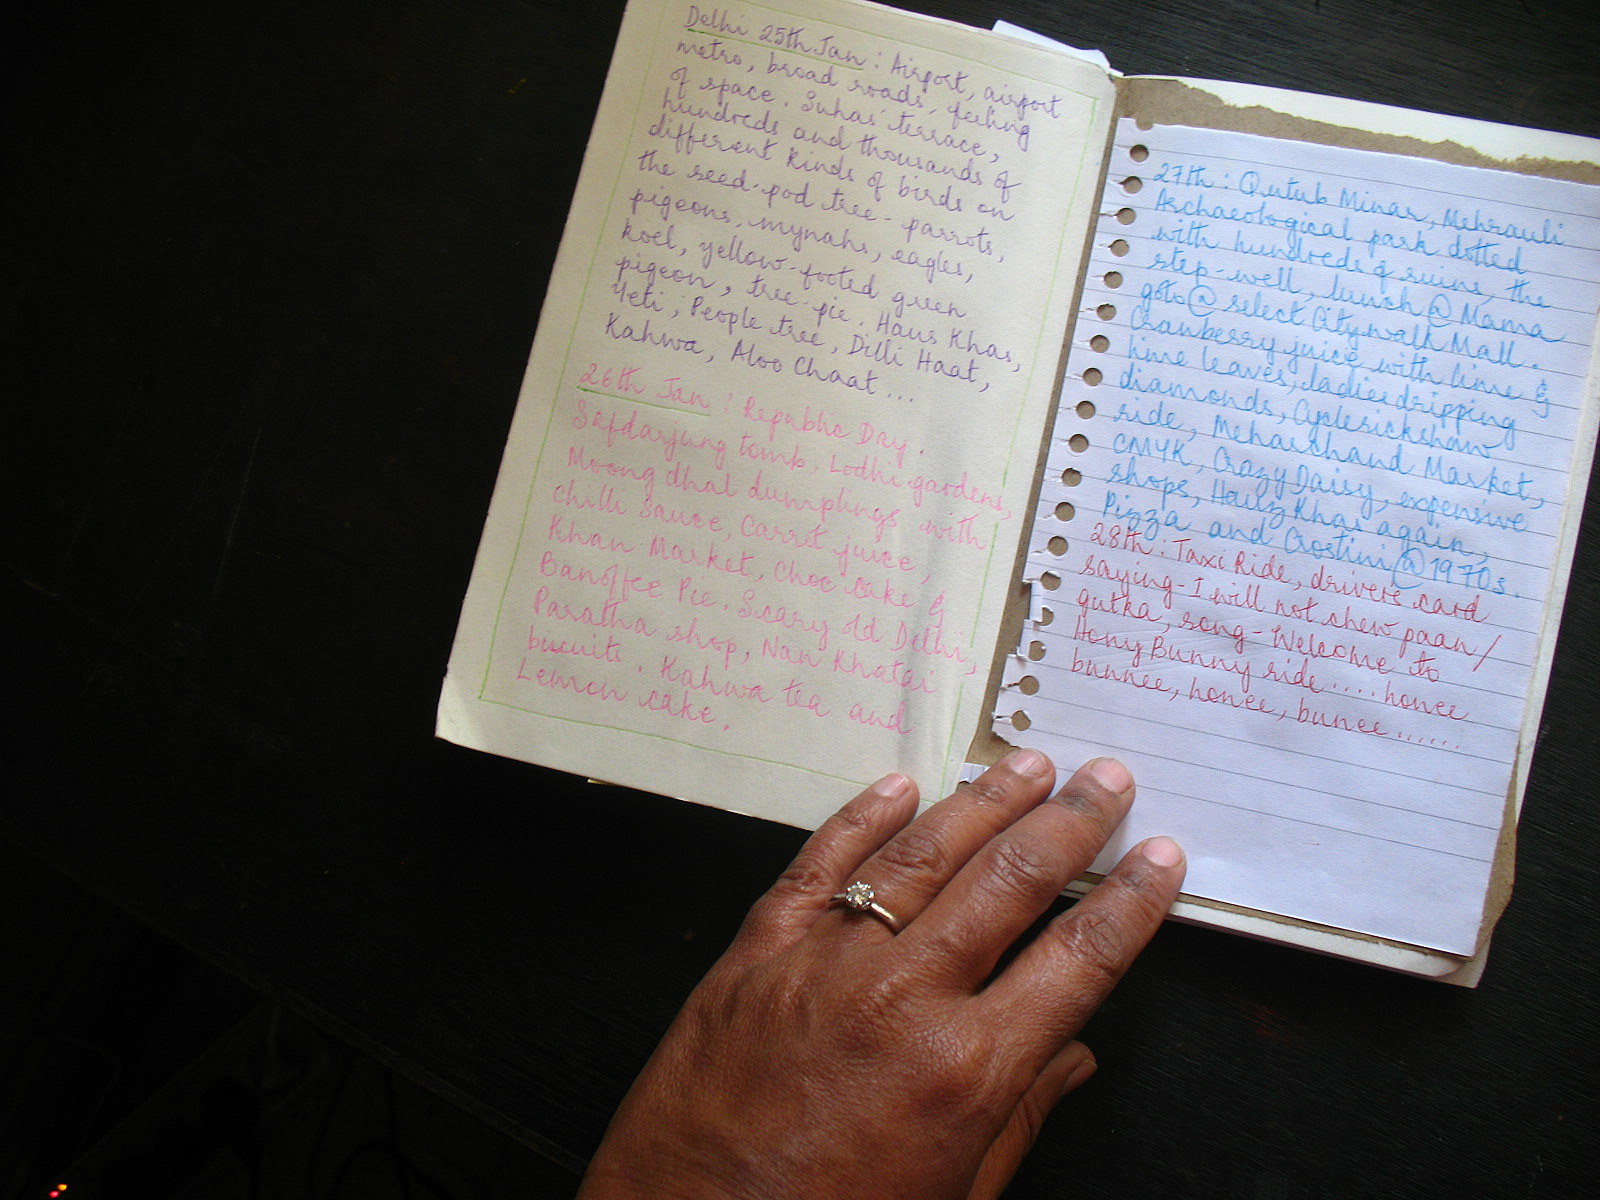 Delhi 25th Jan : Airport, airport
metro, broad roads, feeling
of space. Suhas' terrace,
hundreds and thousands of
different kinds of birds on
the seed-pod tree - parrots,
pigeons, mynahs, eagles,
koel, yellow-footed green
pigeon, tree-pie. Haus Khas,
Yeti, People tree, Dilli Haat,
Kahwa, Aloo Chaat ...
26th Jan : Republic Day.
Safdarjung tomb, Lodhi gardens,
Moong dhal dumplings with
chilli Sauce, Carrot juice,
Khan Market, Choc cake &
Banoffee Pie. Scary old Delhi,
Paratha shop, Nan Khatai
biscuits. Kahwa tea and
Lemon cake.
27th : Qutub Minar, Mehrauli
Archaeological park dotted
with hundreds of ruins, the
step-well, lunch @ Mama
goto @ select Citywalk Mall.
Cranberry juice with lime &
lime leaves, ladies dripping
diamonds, Cyclerickshaw
ride, Meharchand Market,
CMYK, Crazy Daisy, expensive
shops, Hauz Khas again,
Pizza and Crostini @ 1970s.
28th : Taxi Ride, drivers card
saying - I will not chew paan/
gutka, song - Welcome to
Hony Bunny ride .... honee
bunnee, honee, bunee ......